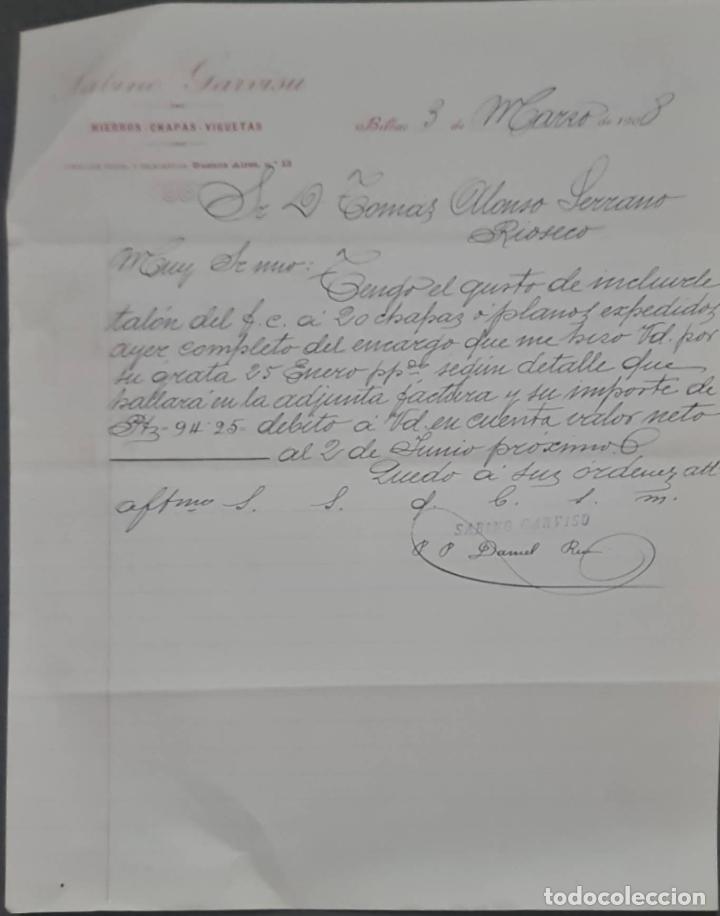 Sabino Garviso
HIERROS-CHAPAS-VIGUETAS
Buenos Aires, n.º 13
Bilbao 3 de Marzo de 1908
Sr D Tomas Alonso Serrano
Rioseco
Muy Sr mio:
Tengo el gusto de incluirle
talón del f.c. á 20 chapas ó planos expedidos
ayer completo del encargo que me hizo Vd. por
su grata 25 Enero ppdo según detalle que
hallará en la adjunta factura y su importe de
Ptz- 94.25- debito á Vd. en cuenta valor neto
al 2 de Junio proximo.
Quedo á sus ordenes att
aftmo S. S. q. b. s. m.
SABINO GARVISO
P P Daniel
todocoleccion
todocoleccion.net